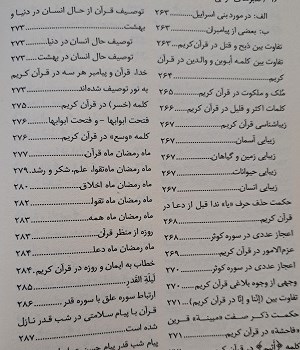 الف: در مورد بنی اسراییل ۲۶۳
ب: بعضی از پیامبران ۲۶۳
تفاوت بین ذبح و قتل در قرآن‌کریم ۲۶۳
تفاوت بین کلمه أبوین و والدین در قرآن
کریم ۲۶۴
مُلک و ملکوت در قرآن کریم ۲۶۵
کلمات اکثر و قلیل در قرآن کریم ۲۶۶
زیباشناسی قرآنی ۲۶۷
زیبایی آسمان ۲۶۷
زیبایی زمین و گیاهان ۲۶۷
زیبایی حیوانات ۲۶۷
زیبایی انسان ۲۶۷
حکمت حذف حرف «یاء ندا قبل از دعا در
قرآن کریم ۲۶۸
اعجاز عددی در سوره کوثر ۲۶۸
عزم‌الامور در قرآن کریم ۲۶۹
اعجاز عددی در سوره کوثر ۲۷۰
وجهی از وجوه بلاغی قرآن کریم ۲۷۰
تفاوت بین (إنَّنا و إنَّا در قرآن کریم) ۲۷۱
حکمت ذکر صفت «مبینة» قرین
«فاحشة» در قرآن کریم ۲۷۱
توصیف قرآن از حال انسان در دنیا و
بهشت ۲۷۳
توصیف حال انسان در دنیا ۲۷۳
توصیف حال انسان در بهشت ۲۷۳
خدا، قرآن و پیامبر هر سه در قرآن کریم
به نور توصیف شده‌اند ۲۷۳
کلمه (خسر) در قرآن کریم ۲۷۵
فتحت ابوابها – و فتحت ابوابها ۲۷۶
کلمه «وسع» در قرآن کریم ۲۷۶
ماه رمضان ماه قرآن ۲۷۷
ماه رمضان ماه‌تقوا، علم، شکر و رشد ۲۷۹
ماه رمضان ماه اخلاق ۲۸۰
ماه رمضان ماه تقوا ۲۸۲
ماه رمضان ماه همه ۲۸۳
روزه از منظر قرآن ۲۸۳
ماه رمضان ماه دعا ۲۸۴
خطاب به ایمان و روزه در قرآن کریم ۲۸۴
لیلَةِ القَدرِ ۲۸۵
ارتباط سوره علق با سوره قدر ۲۸۶
قرآن با پیام سلامتی در شب قدر نازل
شده است ۲۸۷